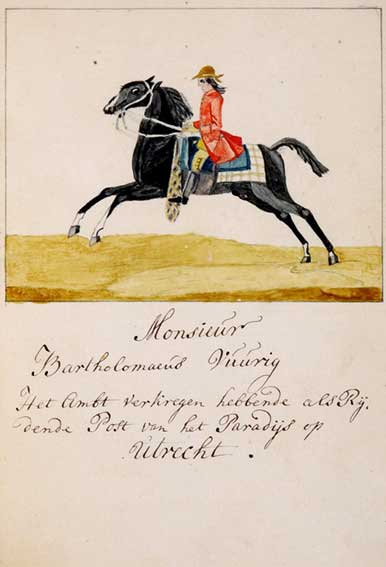 Monsieur
Bartholomaeus Vuurig
Het Ambt verkregen hebbende als Rij,
dende Post van het Paradijs op
Utrecht.